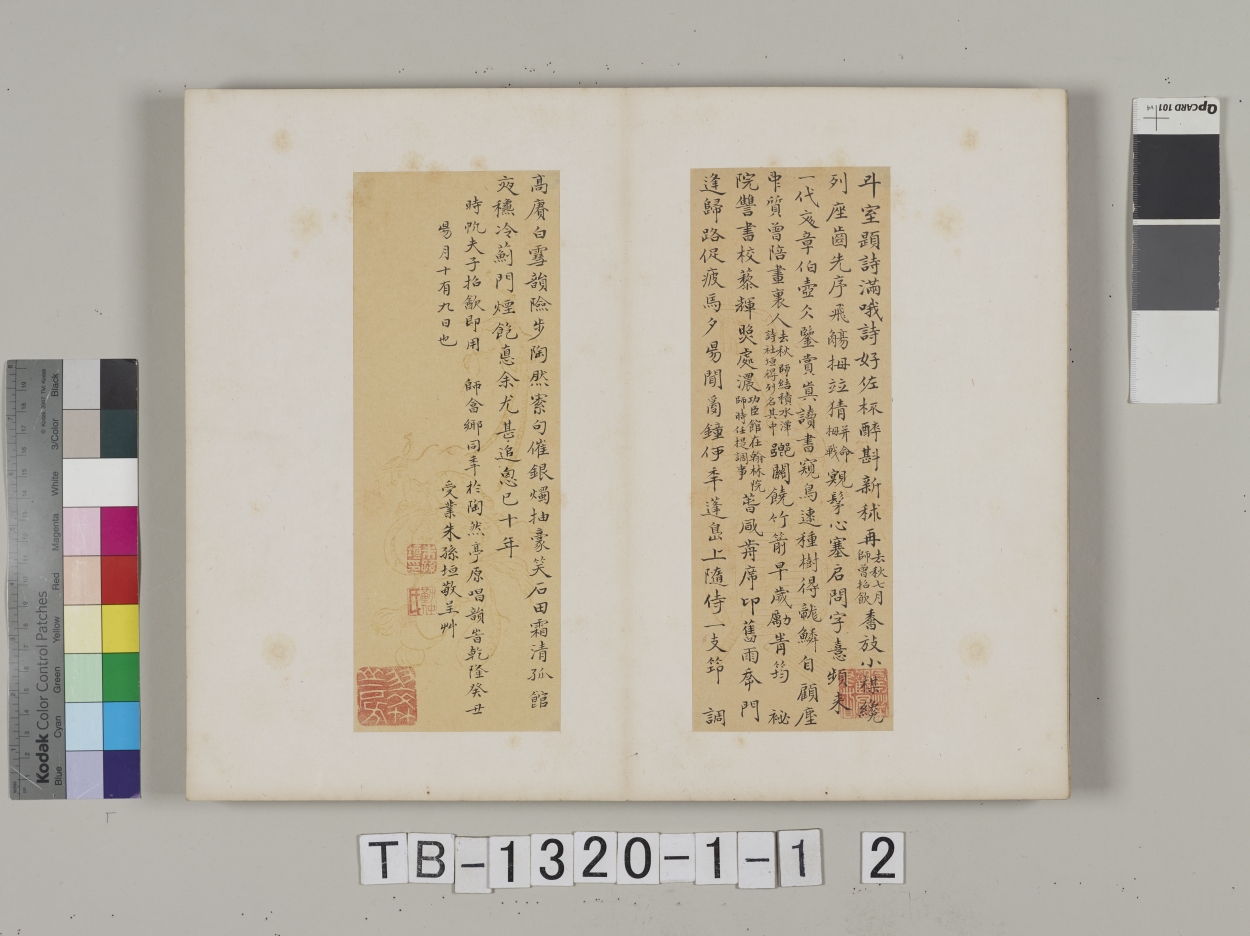 斗室題詩滿哦詩好佐杯醉斟新秫再去秋七月師曾招飲奮放小棋繞
列座齒先序飛觴拇竝猜拇戰窺髩心塞启問字意頻來
一代文章伯壺公鑒賞真讀書窺鳥迹種樹得龍鱗自顧塵
中質曾陪畫裏人去秋師結積水潭詩社垣得列名其中饒竹箭早歲勵青筠 祕
院讐書校藜輝照處濃功臣館在翰林院師時任提調事舊雨奉門
逢歸路促疲馬夕陽閒鐘伊年蓬島上隨侍一支筇 調
高賡白雪韻險步陶然索句催銀燭抽豪笑石田霜清孤館
夜穗冷薊門煙飽悳余尤甚追恩已十年
時帆夫子招飲即用 師會鄉同年於陶然亭原唱韻旹乾隆癸丑
昜月十有九日也 受業朱孫垣敬呈艸
TB-1320-1-1 2
Kodak Color Control Patches
Blue Cyan Green Yellow Red Magenta White 3/Color Black
QPCARD 101 v4